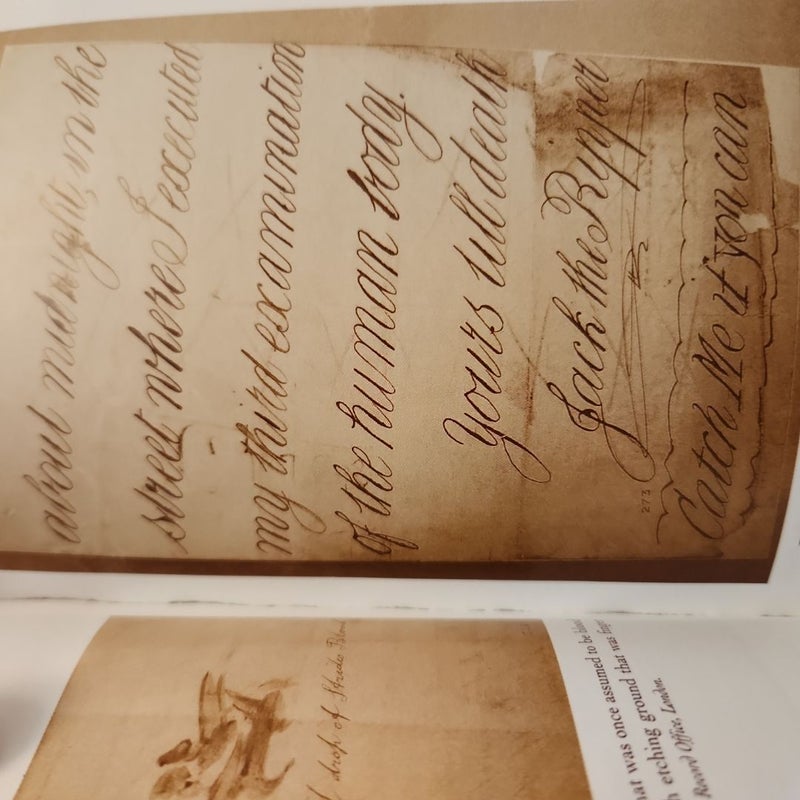 about midnight, in the
street where I executed
my third examination
of the human body.
Yours till death
Jack the Ripper
Catch Me if you can
273
drop of Stride Blood
hat was once assumed to be blood
h etching ground that was
Record Office, London.